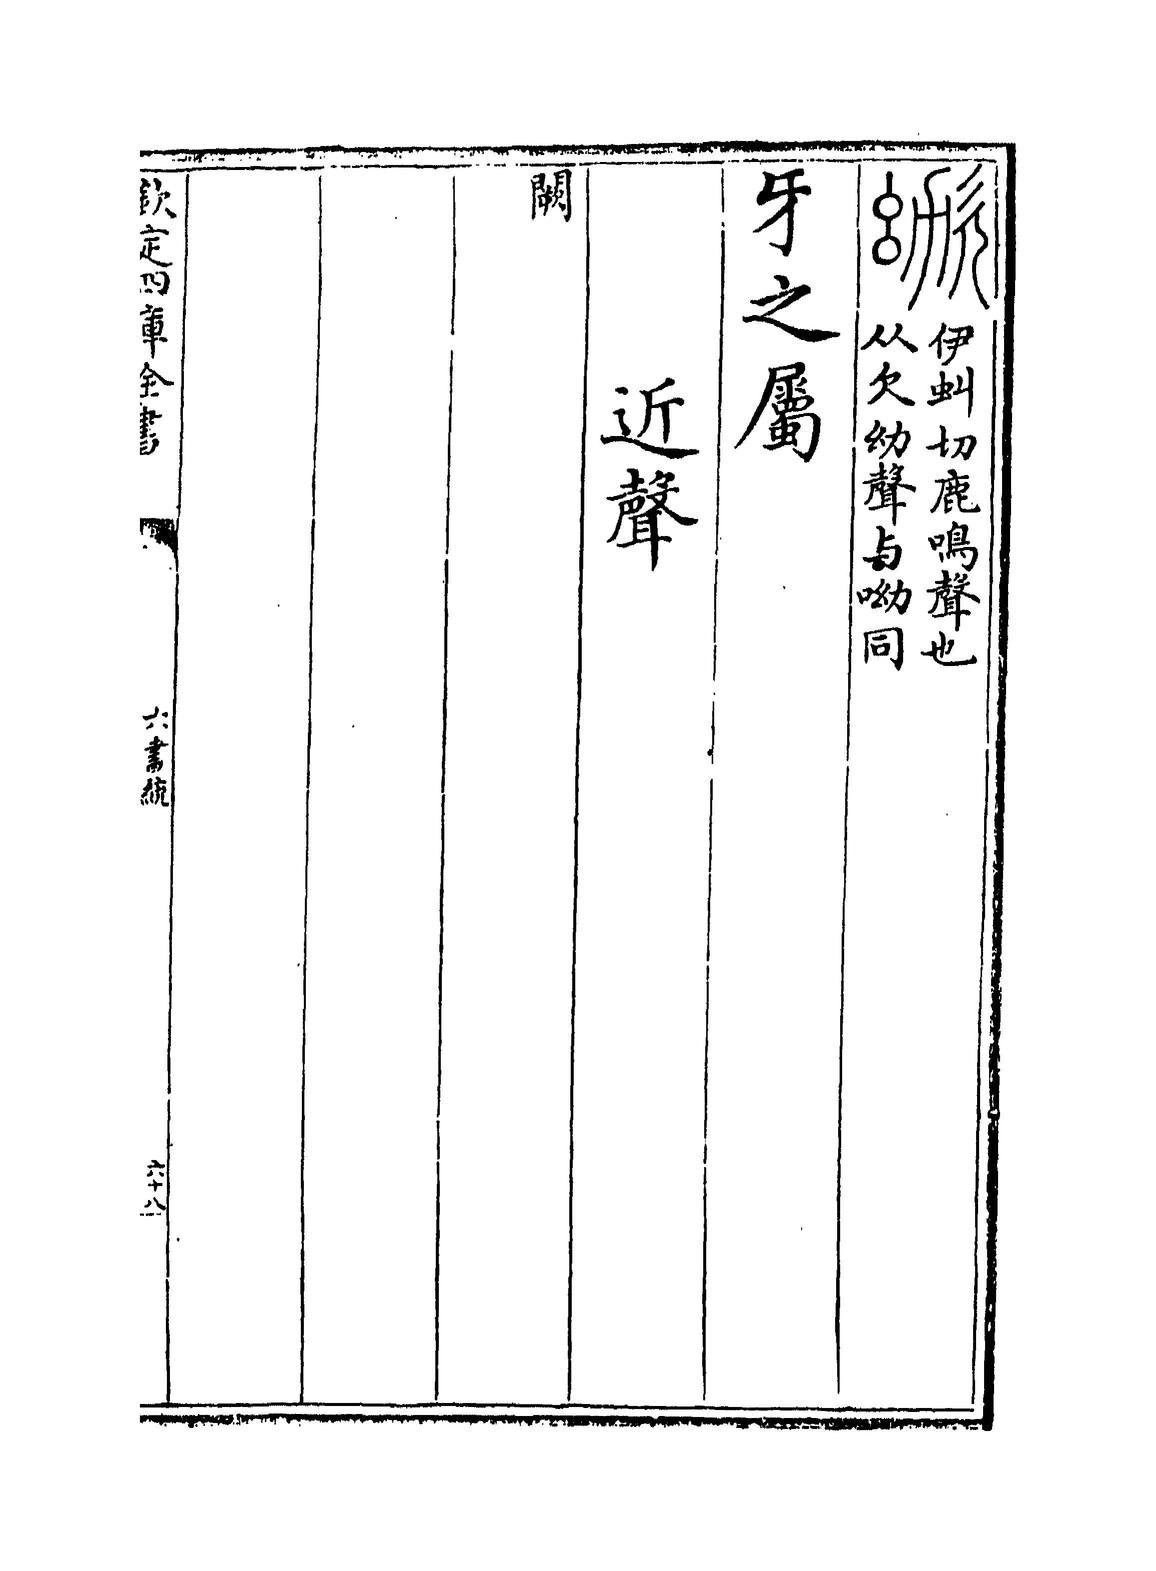 伊虯切鹿鳴聲也
从欠幼聲与呦同
牙之屬
近聲
闕
欽定四庫全書
六書統
六十八